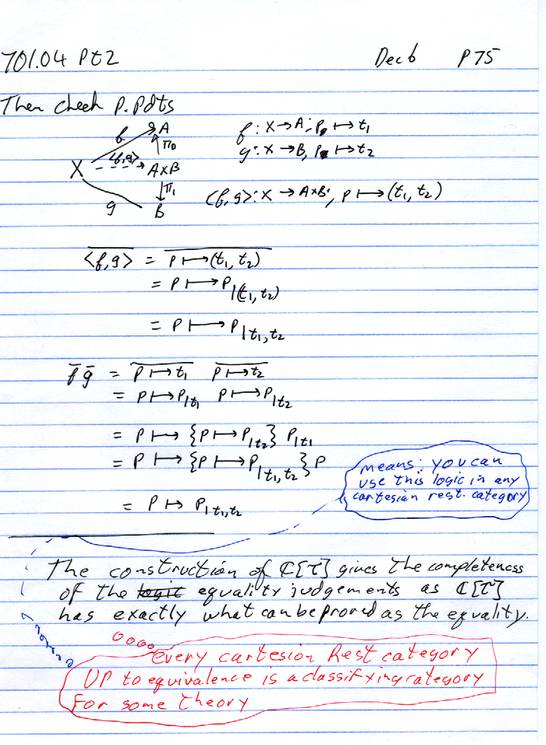 701.04 Pt2 Dec 6 P75
Then check P.Pdts
f A f: X → A; p ↦ t₁
X ⟨f,g⟩ A×B π₀ g: X → B, p ↦ t₂
g π₁ B ⟨f,g⟩: X → A×B; p ↦ (t₁, t₂)
⟨f,g⟩ = p ↦ (t₁, t₂)
= p ↦ p|(t₁, t₂)
= p ↦ p|t₁, t₂
f̄ ḡ = p ↦ t₁ p ↦ t₂
= p ↦ p|t₁ p ↦ p|t₂
= p ↦ {p ↦ p|t₂} p|t₁
= p ↦ {p ↦ p|t₁, t₂} p
= p ↦ p|t₁, t₂
means: you can
use this logic in any
cartesian rest. category
The construction of ℂ[T] gives the completeness
of the logic equality judgements as ℂ[T]
has exactly what can be proved as the equality.
every cartesion Rest category
UP to equivalence is a classifxing category
For some theory